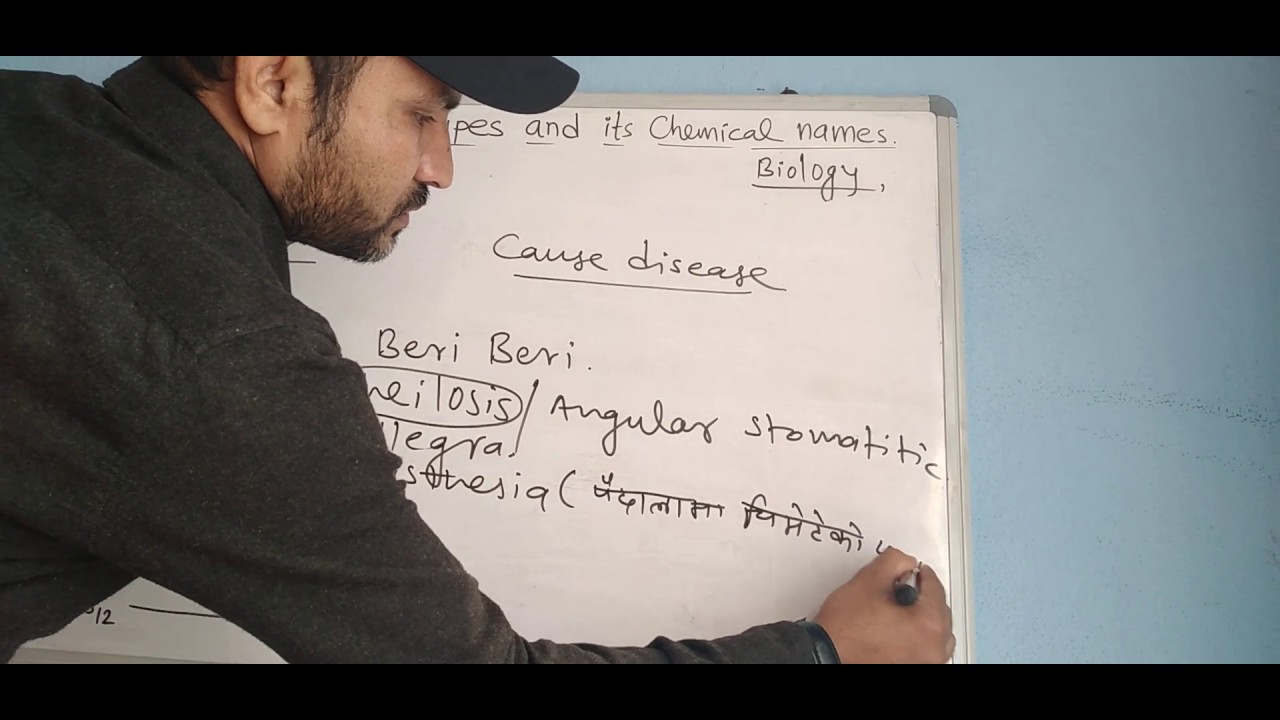 pes and its Chemical names.
Biology,
Cause disease
Beri Beri.
heilosis / Angular stomatitic
llegra.
sthesia ( पैदालामा चिमेटेको
12